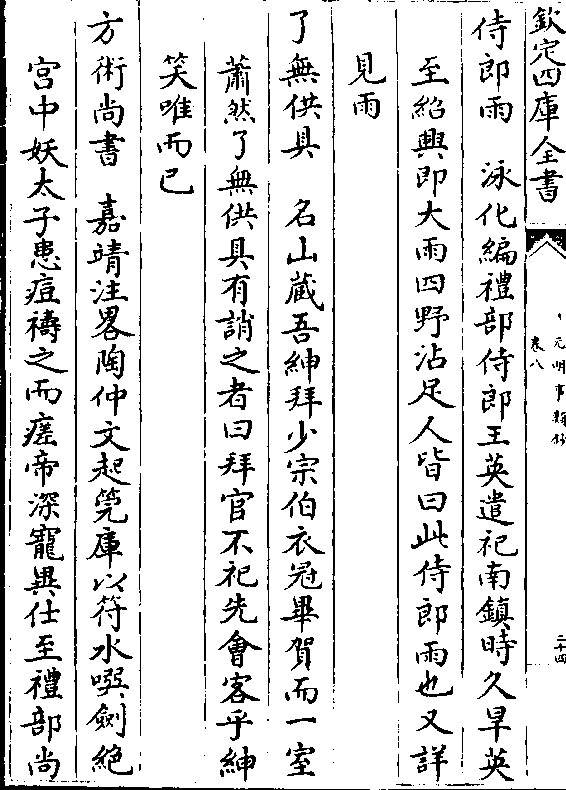 欽定四庫全書
元明事類鈔
卷八
二十四
侍郎雨　泳化編禮部侍郎王英遣祀南鎮時久旱英
至紹興即大雨四野沾足人皆曰此侍郎雨也又詳
見雨
了無供具　名山藏吾紳拜少宗伯衣冠畢賀而一室
蕭然了無供具有誚之者曰拜官不祀先會客乎紳
笑唯而已
方術尚書　嘉靖注畧陶仲文起筦庫以符水噀劍絶
宫中妖太子患痘禱之而瘥帝深寵異仕至禮部尚